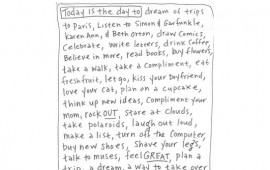 Today is the day to dream of trips
to Paris, Listen to Simon & Garfunkle,
Karen Ann, & Beth Orton, draw Comics,
Celebrate, Write letters, drink Coffee,
Believe in more, read books, buy flowers,
take a walk, take a Compliment, eat
fresh fruit, let go, kiss your boyfriend,
love your cat, plan on a cupcake,
think up new ideas, Compliment your
mom, rock OUT, Stare at Clouds,
take polaroids, laugh out loud,
make a list, turn off the Computer,
buy new shoes, Shave your legs,
talk to muses, feel GREAT, plan a
trip, a dream, a way to take over